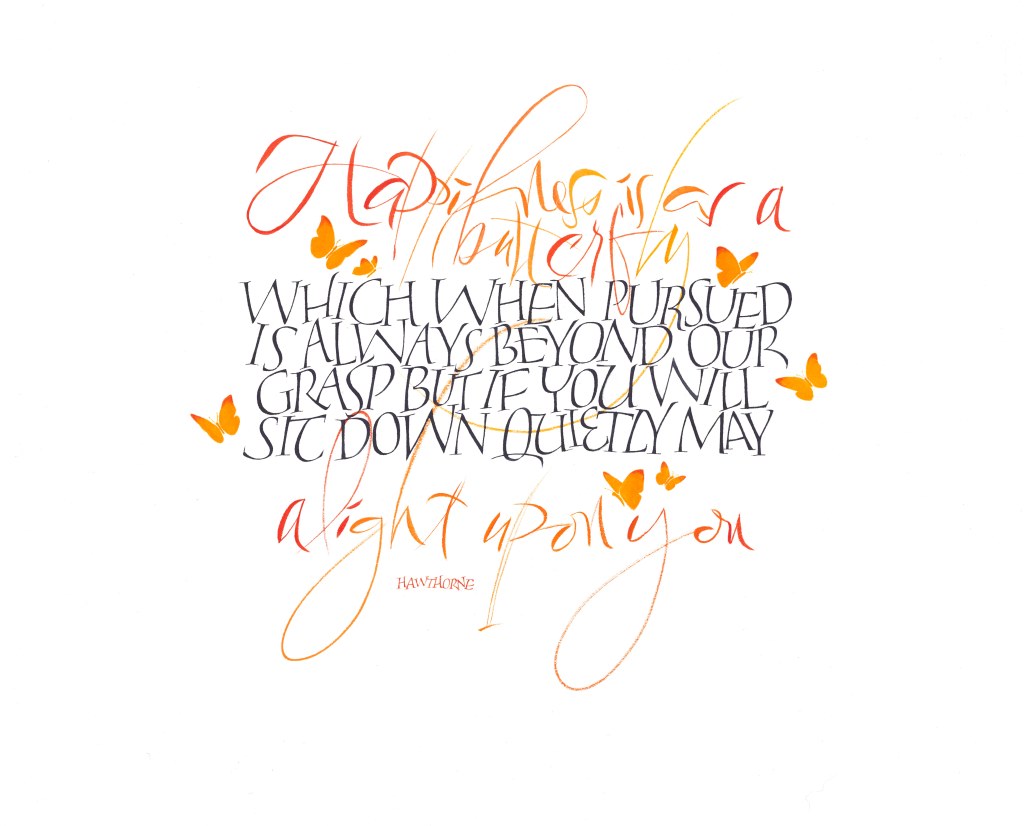 Happiness is as a
butterfly
WHICH WHEN PURSUED
IS ALWAYS BEYOND OUR
GRASP BUT IF YOU WILL
SIT DOWN QUIETLY MAY
alight upon you
HAWTHORNE